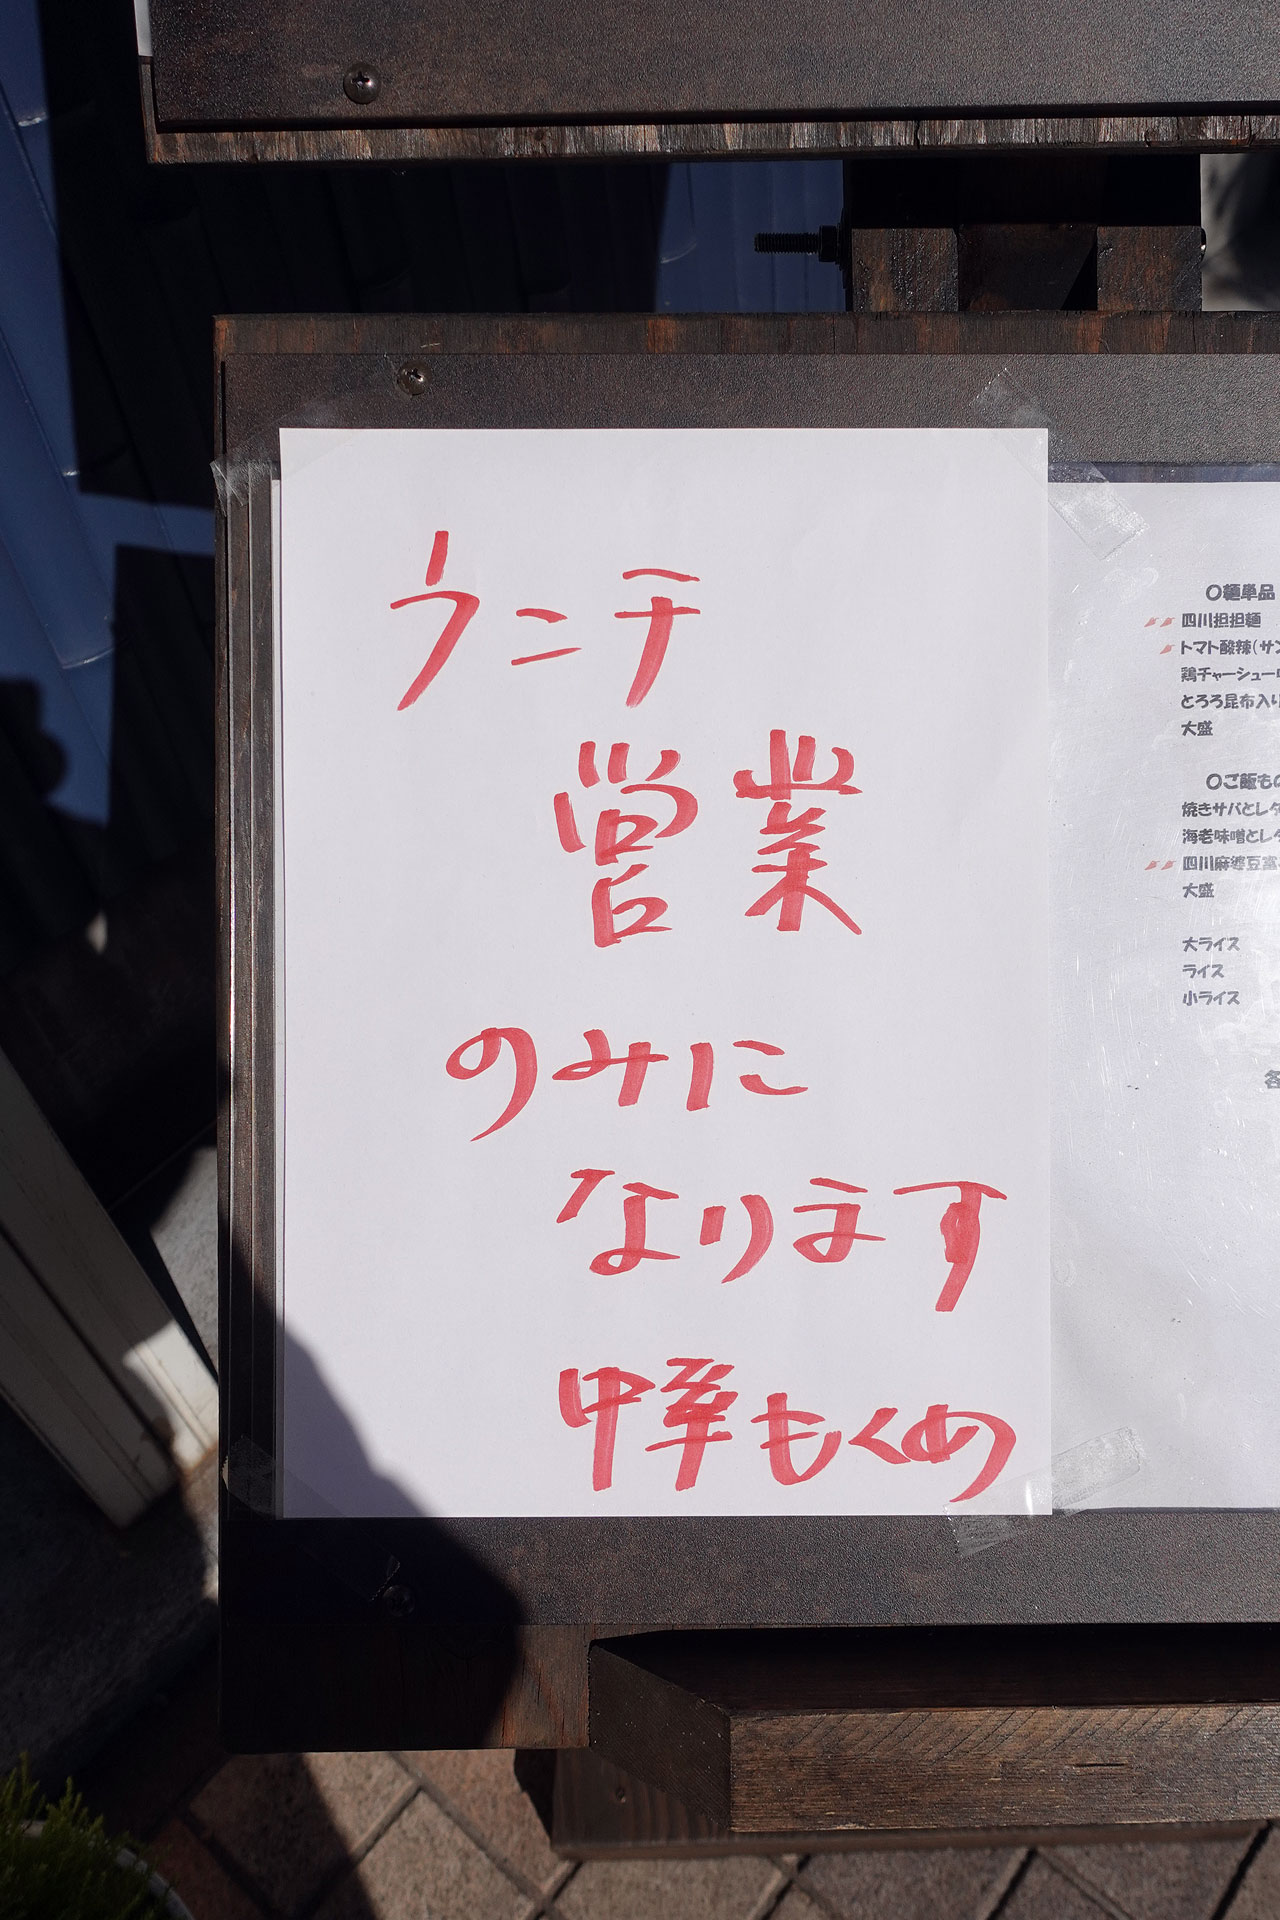 ランチ
営業
のみに
なります
中華もくめ
〇麺単品
四川担担麺
トマト酸辣(サン
鶏チャーシュー
とろろ昆布入り
大盛
〇ご飯もの
焼きサバとレタ
海老味噌とレタ
四川麻婆豆富
大盛
大ライス
ライス
小ライス
各